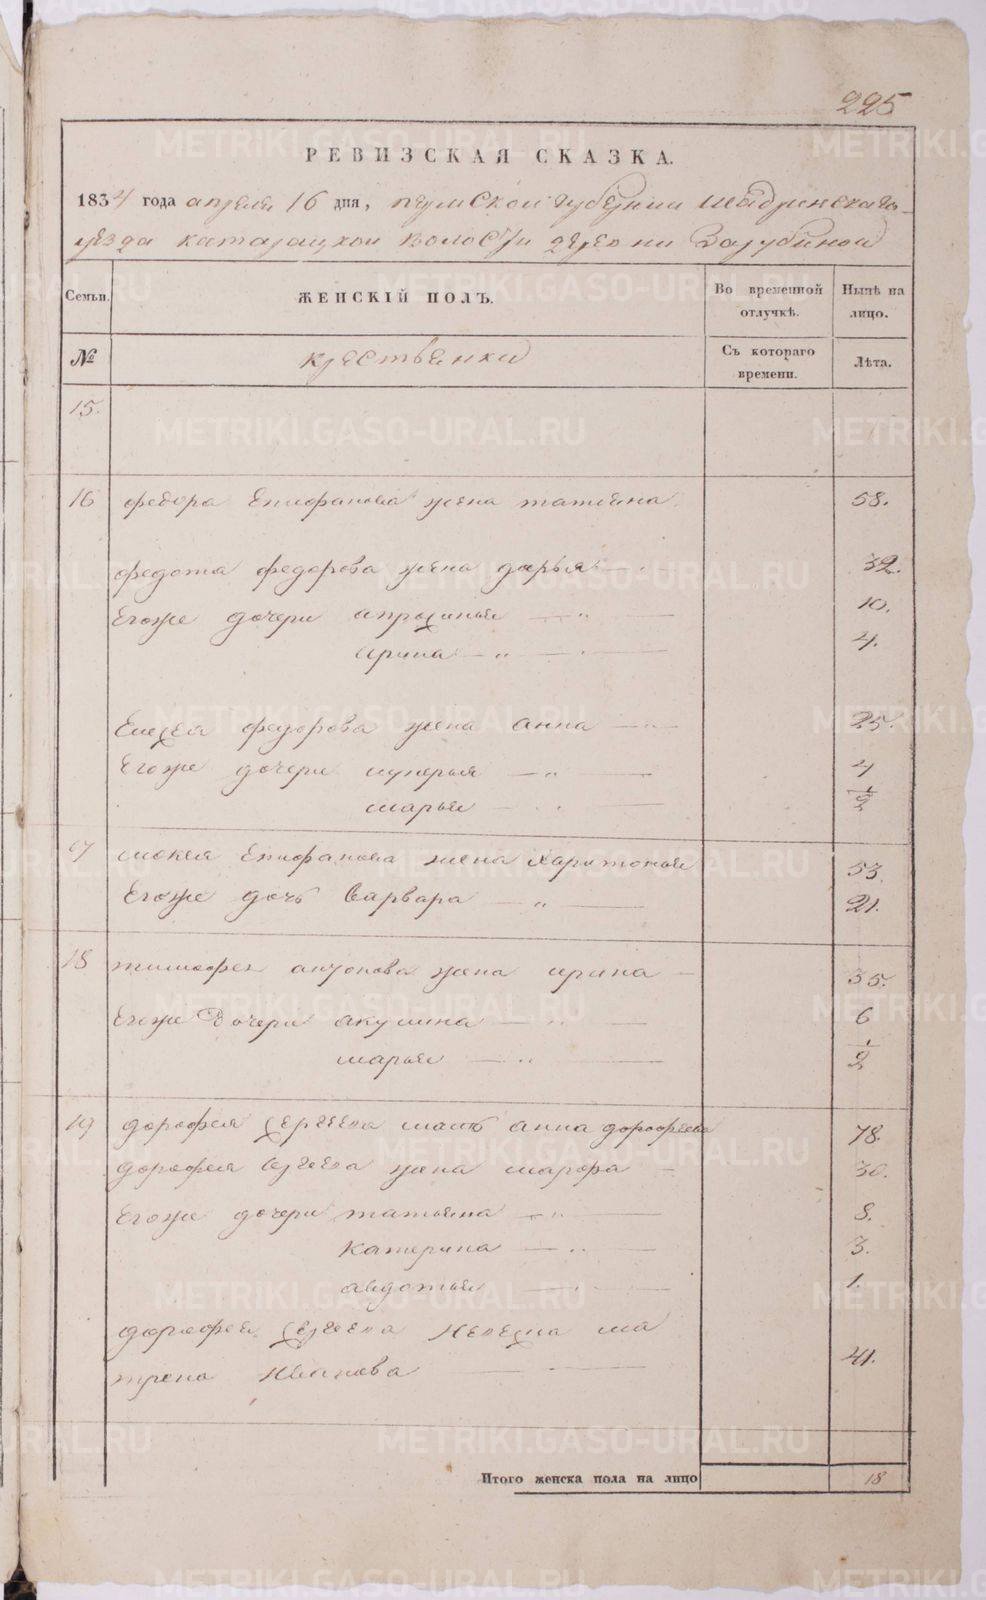 225
РЕВИЗСКАЯ СКАЗКА.
1834 года апреля 16 дня, пермской губернии шадринскаго
уезда катайцкой волости деревни Зарубиной
Семьи. ЖЕНСКІЙ ПОЛЪ. Во временной отлучкѣ. Нынѣ на лицо.
№ крестьенки Съ котораго времени. Лѣта.
15.
16 федора Епифанова жена татьяна 58.
федота федорова жена дарья 32.
Егоже дочери апросинья 10.
ирина 4.
Елесея федорова жена анна 25.
Егоже дочери лукерья 4
марья 1/2
17 мокея Епифанова жена харитонья 53.
Егоже дочь варвара 21.
18 тимофея антонова жена ирина 35.
Егоже дочери акулина 6
марья 1/2
19 дорофея сергеева мать анна дорофеева 78.
дорофея сергеева жена марфа 30.
Егоже дочери татьяна 8.
катерина 3.
авдотья 1.
дорофея сергеева ма
трена Иванова 41.
Итого женска пола на лицо 18
METRIKI.GASO-URAL.RU